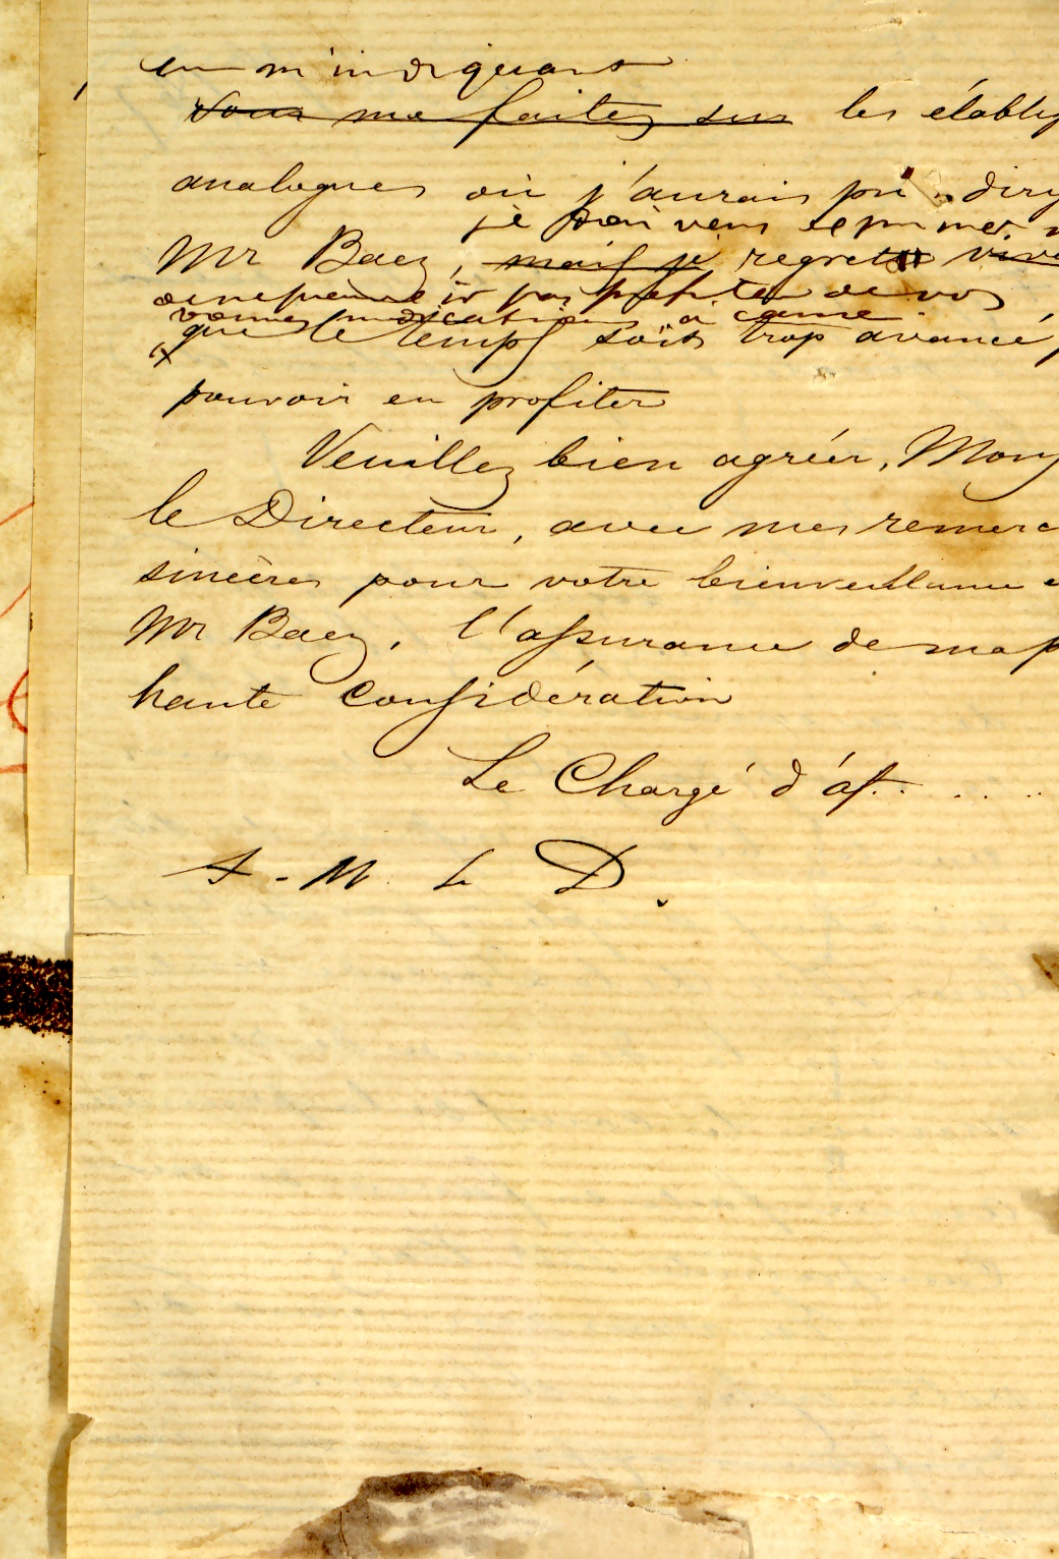 en m'indiquant
vous me faites sur les établis
analogues où j'aurais pu dirig
je dois vous exprimer
Mr Baez, mais je regrette vive
pas profiter de vos
bonnes indications à cause
que le temps soit trop avancé p
pouvoir en profiter
Veuillez bien agréer, Mons
le Directeur, avec mes remerc
sincères pour votre bienveillance e
Mr Baez, l'assurance de ma p
haute considération
Le Chargé d'af. . . . .
A - M. Le D.